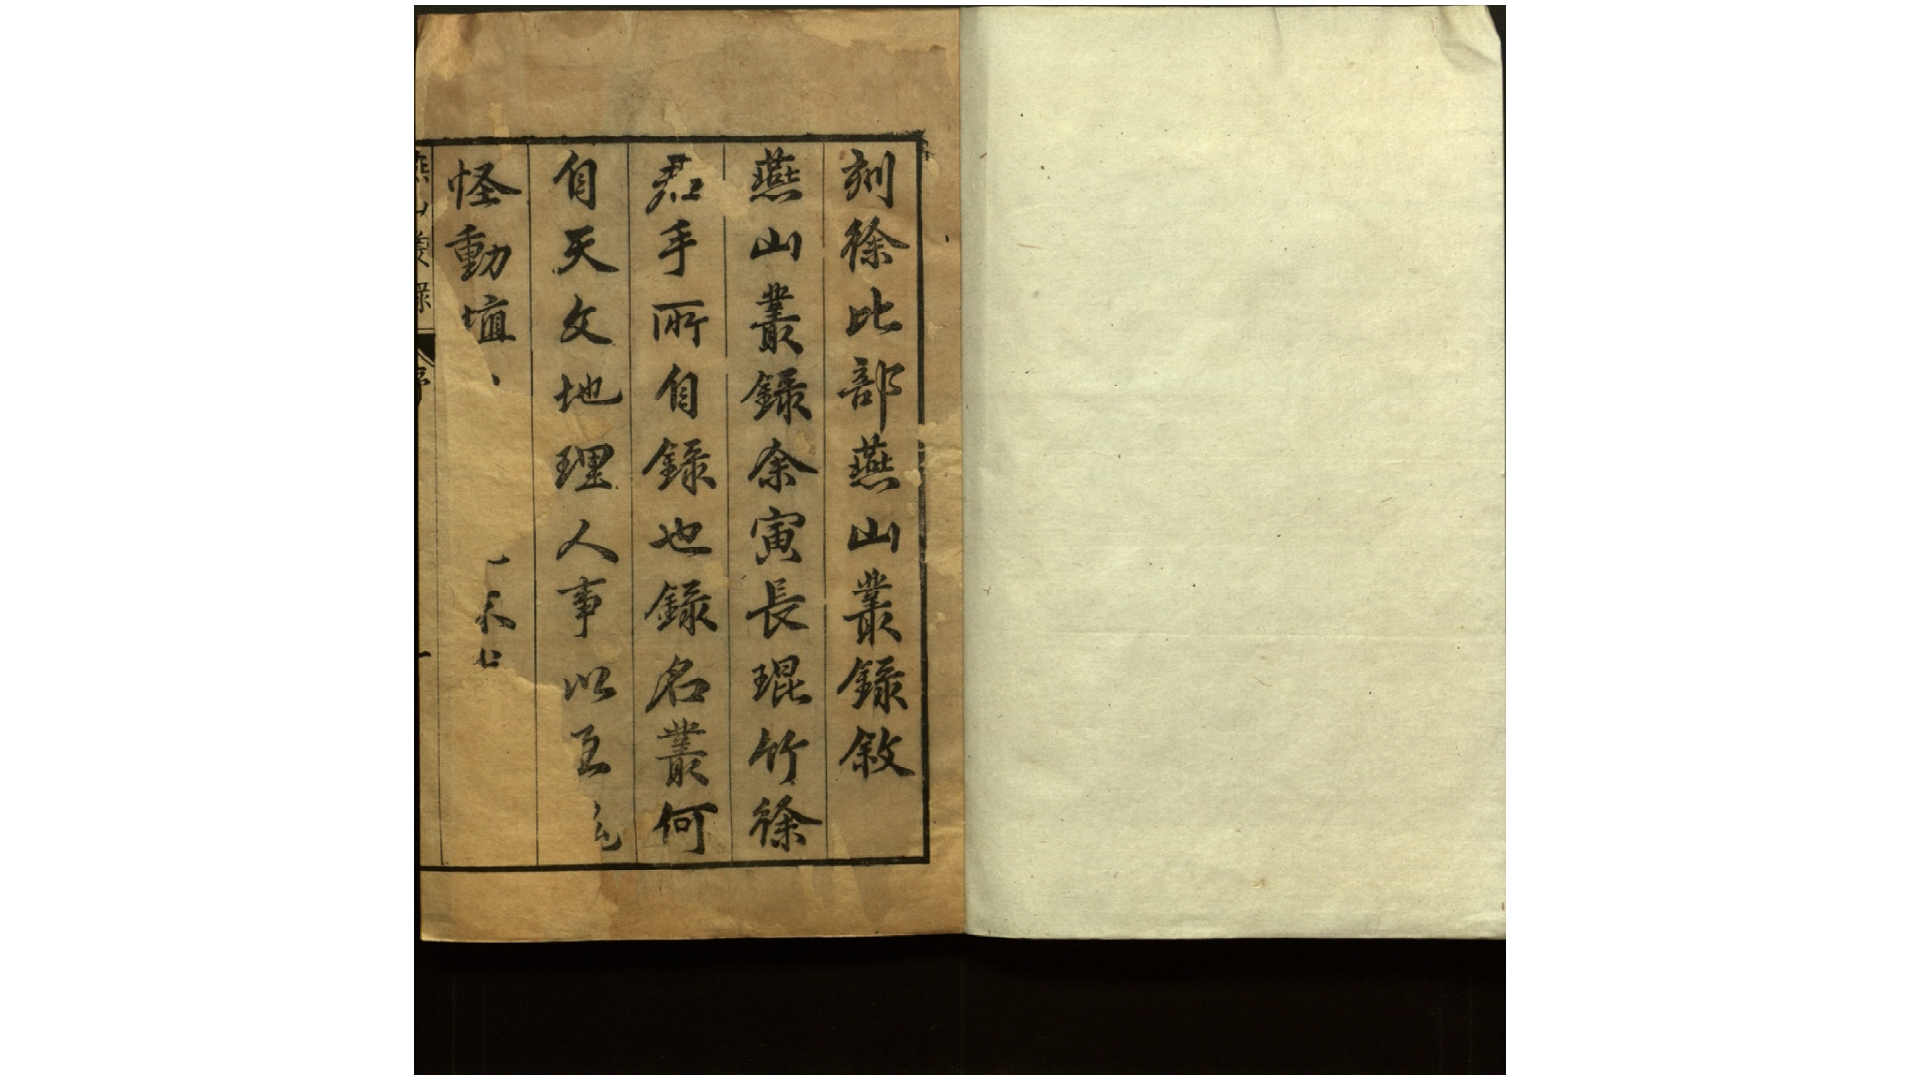 刻徐比部燕山叢録敘
燕山叢録余寅長琨竹徐
君手所自録也録名叢何
自天文地理人事以至
怪動植
燕山叢録
序
一